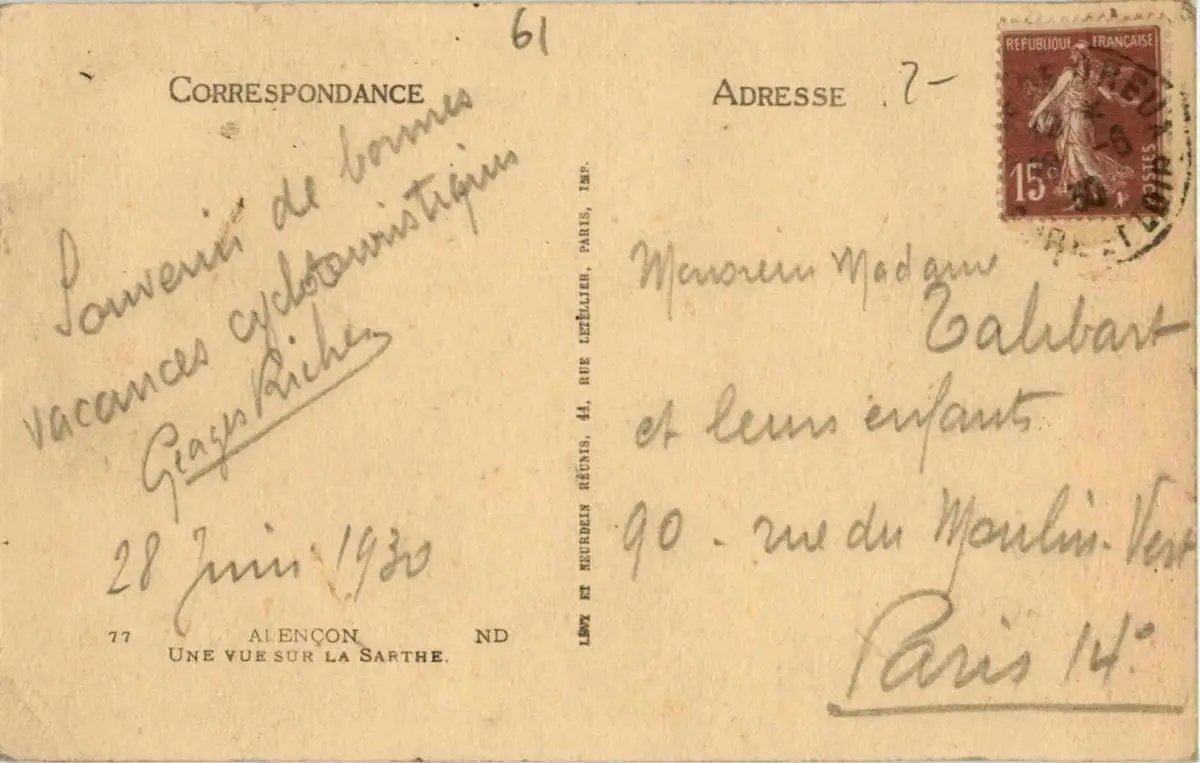 61
CORRESPONDANCE
Souvenir de bonnes
vacances cyclotouristiques
Georges Richer
28 Juin 1930
77 ALENÇON ND
UNE VUE SUR LA SARTHE.
LÉVY ET NEURDEIN RÉUNIS, 44, RUE LETELLIER, PARIS, IMP.
ADRESSE
2-
RÉPUBLIQUE FRANÇAISE
15c
POSTES
DREUX
-6
30
Monsieur Madame
Talibart
et leurs enfants
90 - rue du Moulin-Vert
Paris 14e